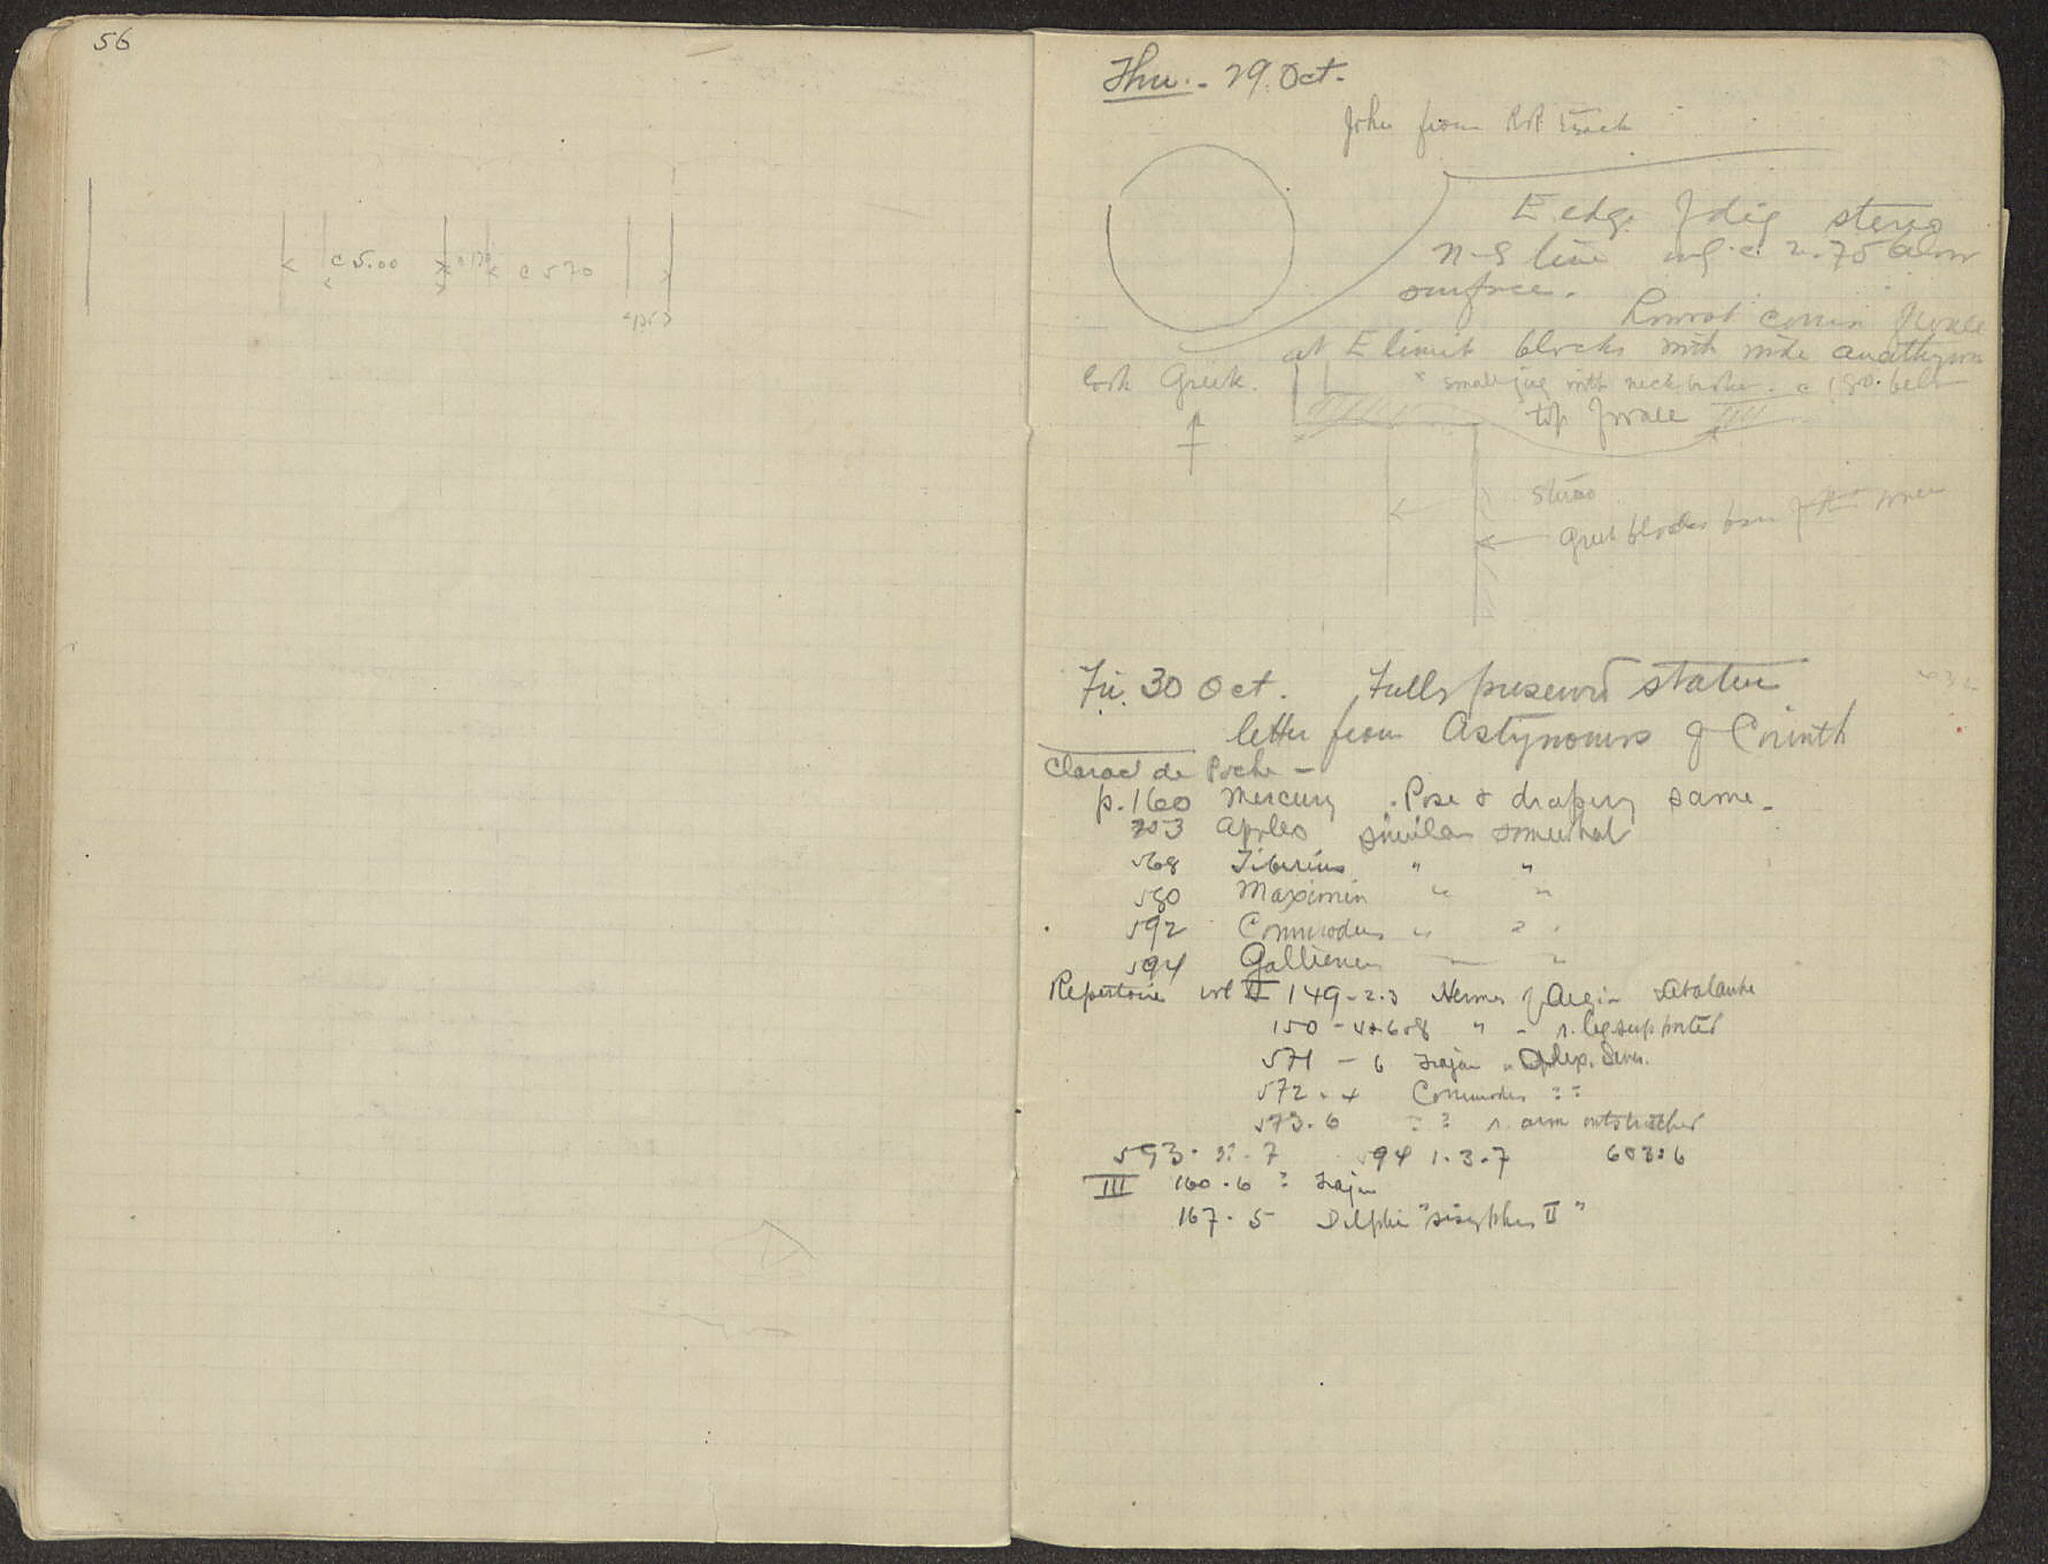 56
c 5.00
c 570
Thu. - 29. Oct.
John from RR track
E edge of dig stereo
N-S line c. 2.75 above
surface.
Lowest course of wall
at E limit blocks with wide anathyrosis
look Greek.
small jug with neck broken. c 1.80. below
top of wall
Stereo
Greek blocks base of wall
Fri. 30 Oct. Fully preserved statue
letter from Astynomos of Corinth
Clarac de Poche -
p. 160 Mercury . Pose & drapery same -
253 Apollo similar somewhat
568 Tiberius " "
580 Maximin " "
592 Commodus " "
594 Gallienus "
Repertoire vol II 149-2.3 Hermes of Aegion & Atalante
150 - " - r. leg supported
571 - 6 Trajan Alex. Sever.
572 . 4 Commodus
573. 6 r. arm outstretched
593. 7 594 1. 3. 7 603: 6
III 160. 6 : Trajan
167. 5 Delphi "Sisyphus II"